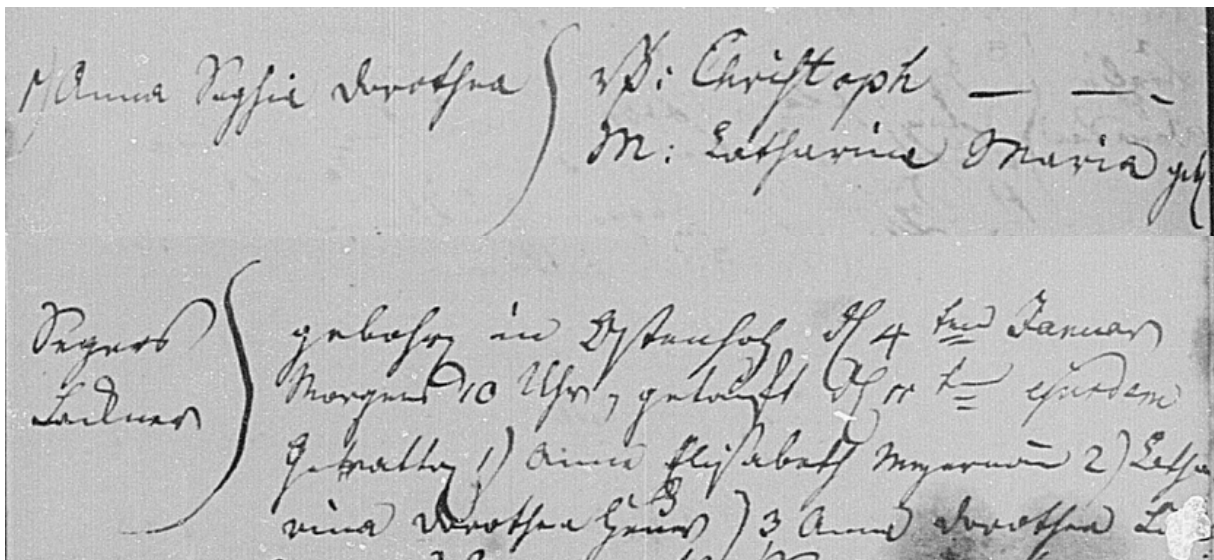 1) Anna Sophia Dorothea
V: Christoph — —
M: Catharina Maria geb
Segers
Lackner
gebohren in Ostenholz d 4 ten Januar
Morgens 10 Uhr, getauft d 11 t ejusdem
Gevattern 1) Anne Elisabeth 2) Catha
rina Dorothea 3 Anna Dorothea